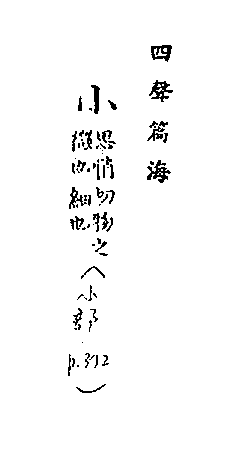 四聲篇海
小
思悄切物之
微也細也
(小部
p.392)